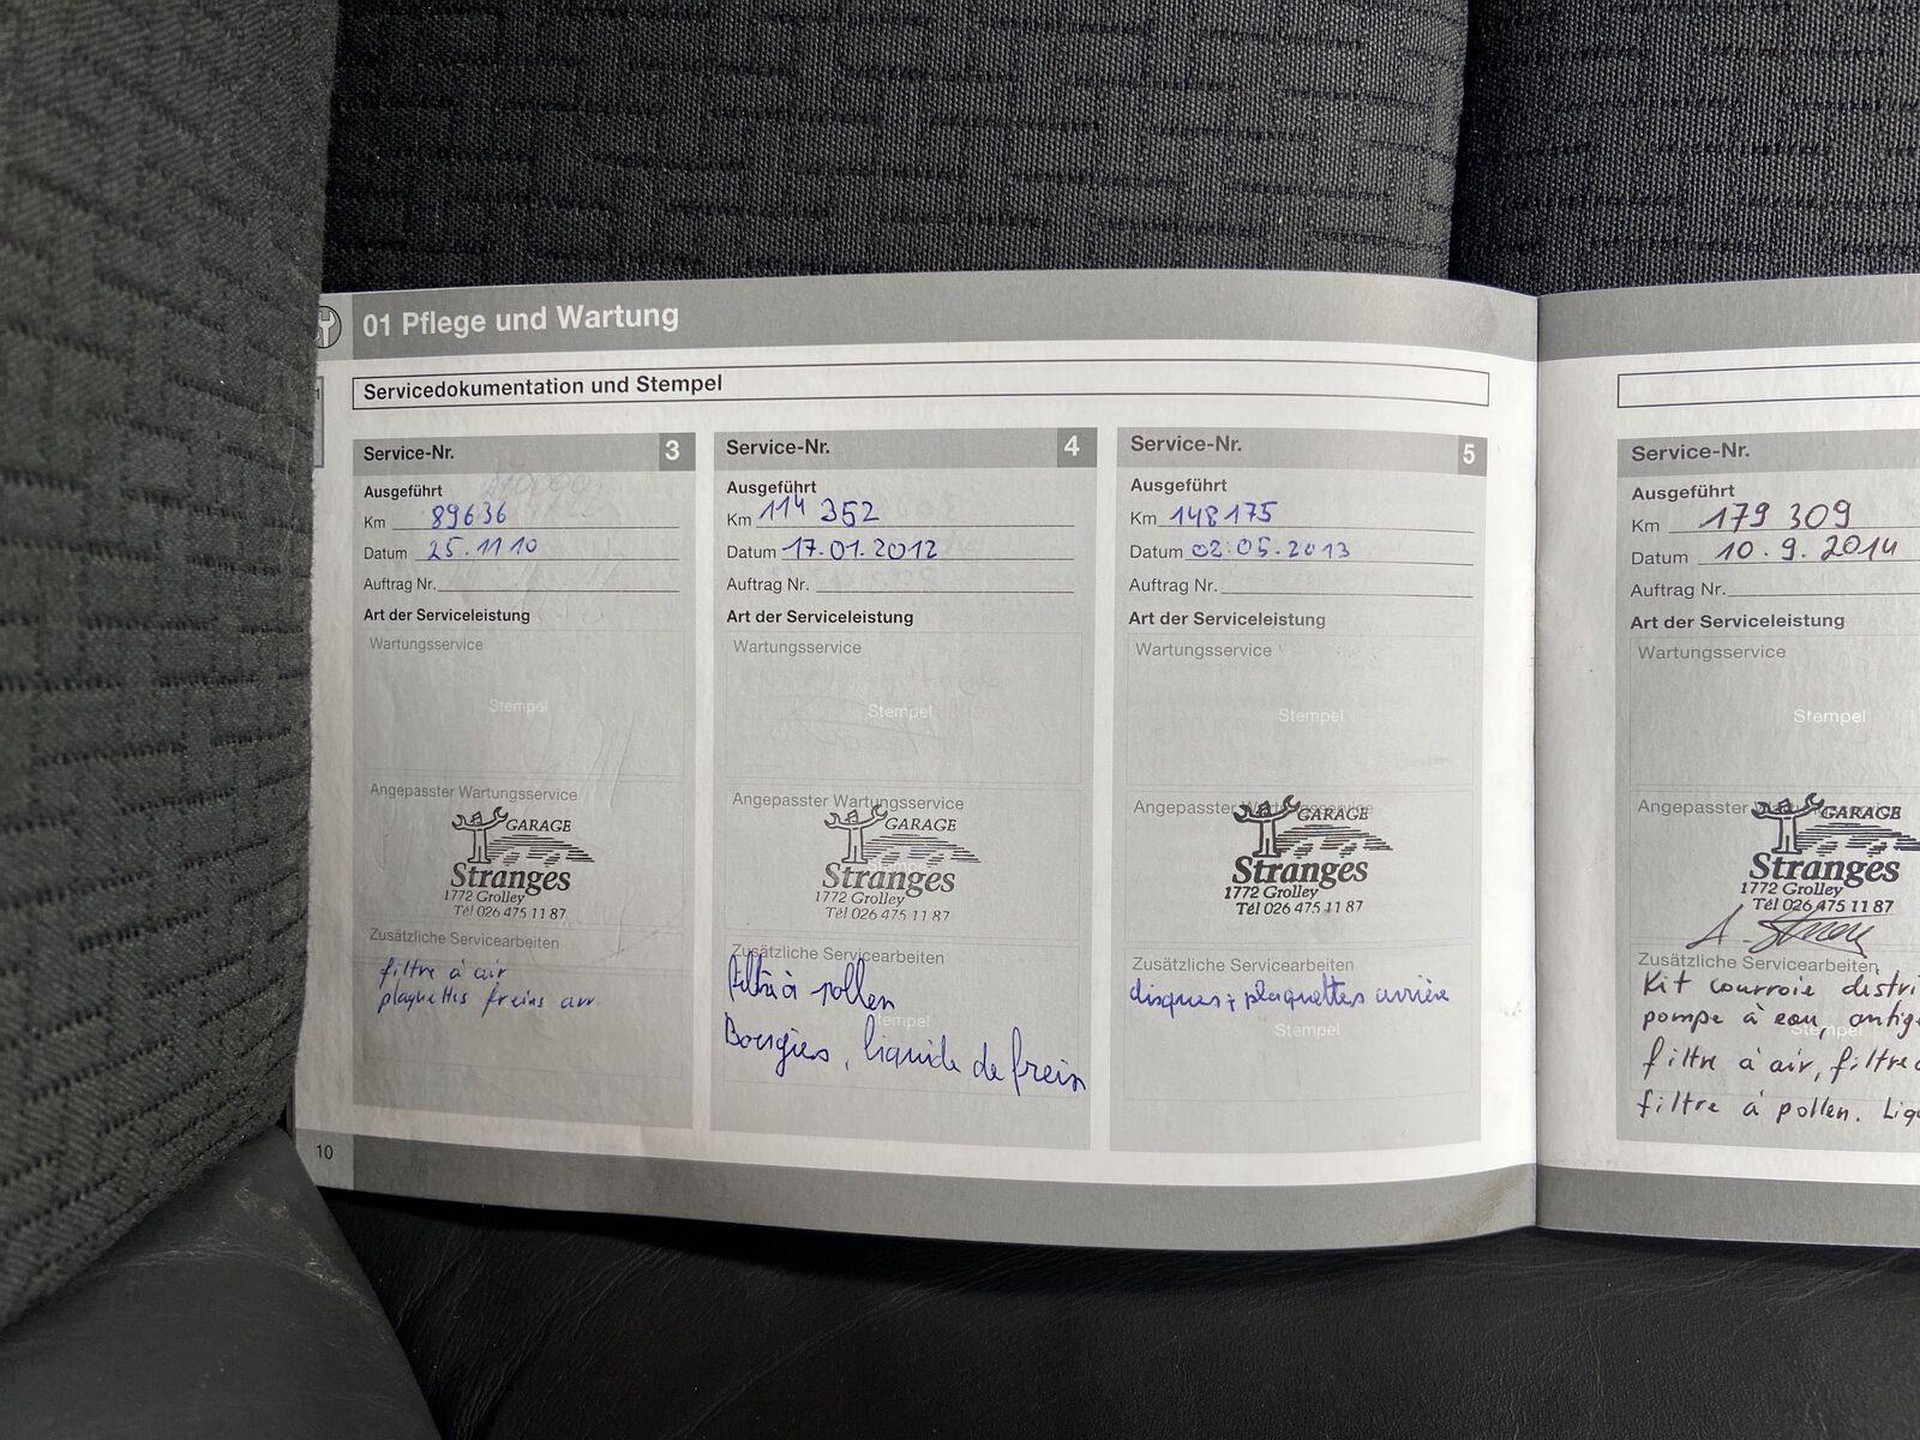 01 Pflege und Wartung
Servicedokumentation und Stempel
Service-Nr. 3
Ausgeführt
Km 89636
Datum 25.11 10
Auftrag Nr.
Art der Serviceleistung
Wartungsservice
Stempel
Angepasster Wartungsservice
GARAGE
Stranges
1772 Grolley
Tél 026 475 11 87
Zusätzliche Servicearbeiten
filtre à air
plaquettes freins arr.
Service-Nr. 4
Ausgeführt
Km 114 352
Datum 17.01.2012
Auftrag Nr.
Art der Serviceleistung
Wartungsservice
Stempel
Angepasster Wartungsservice
GARAGE
Stranges
1772 Grolley
Tél 026 475 11 87
Zusätzliche Servicearbeiten
à pollen
Stempel
Bougies, liquide de frein
Service-Nr. 5
Ausgeführt
Km 148175
Datum 02.05.2013
Auftrag Nr.
Art der Serviceleistung
Wartungsservice
Stempel
Angepasster Wartungsservice
GARAGE
Stranges
1772 Grolley
Tél 026 475 11 87
Zusätzliche Servicearbeiten
disques + plaquettes arrière
Stempel
10
Service-Nr.
Ausgeführt
Km 179 309
Datum 10.9.2014
Auftrag Nr.
Art der Serviceleistung
Wartungsservice
Stempel
Angepasster Wartungsservice
GARAGE
Stranges
1772 Grolley
Tél 026 475 11 87
Zusätzliche Servicearbeiten
Kit courroie distri
pompe à eau, antig
Stempel
filtre à air, filtre
filtre à pollen. Liq